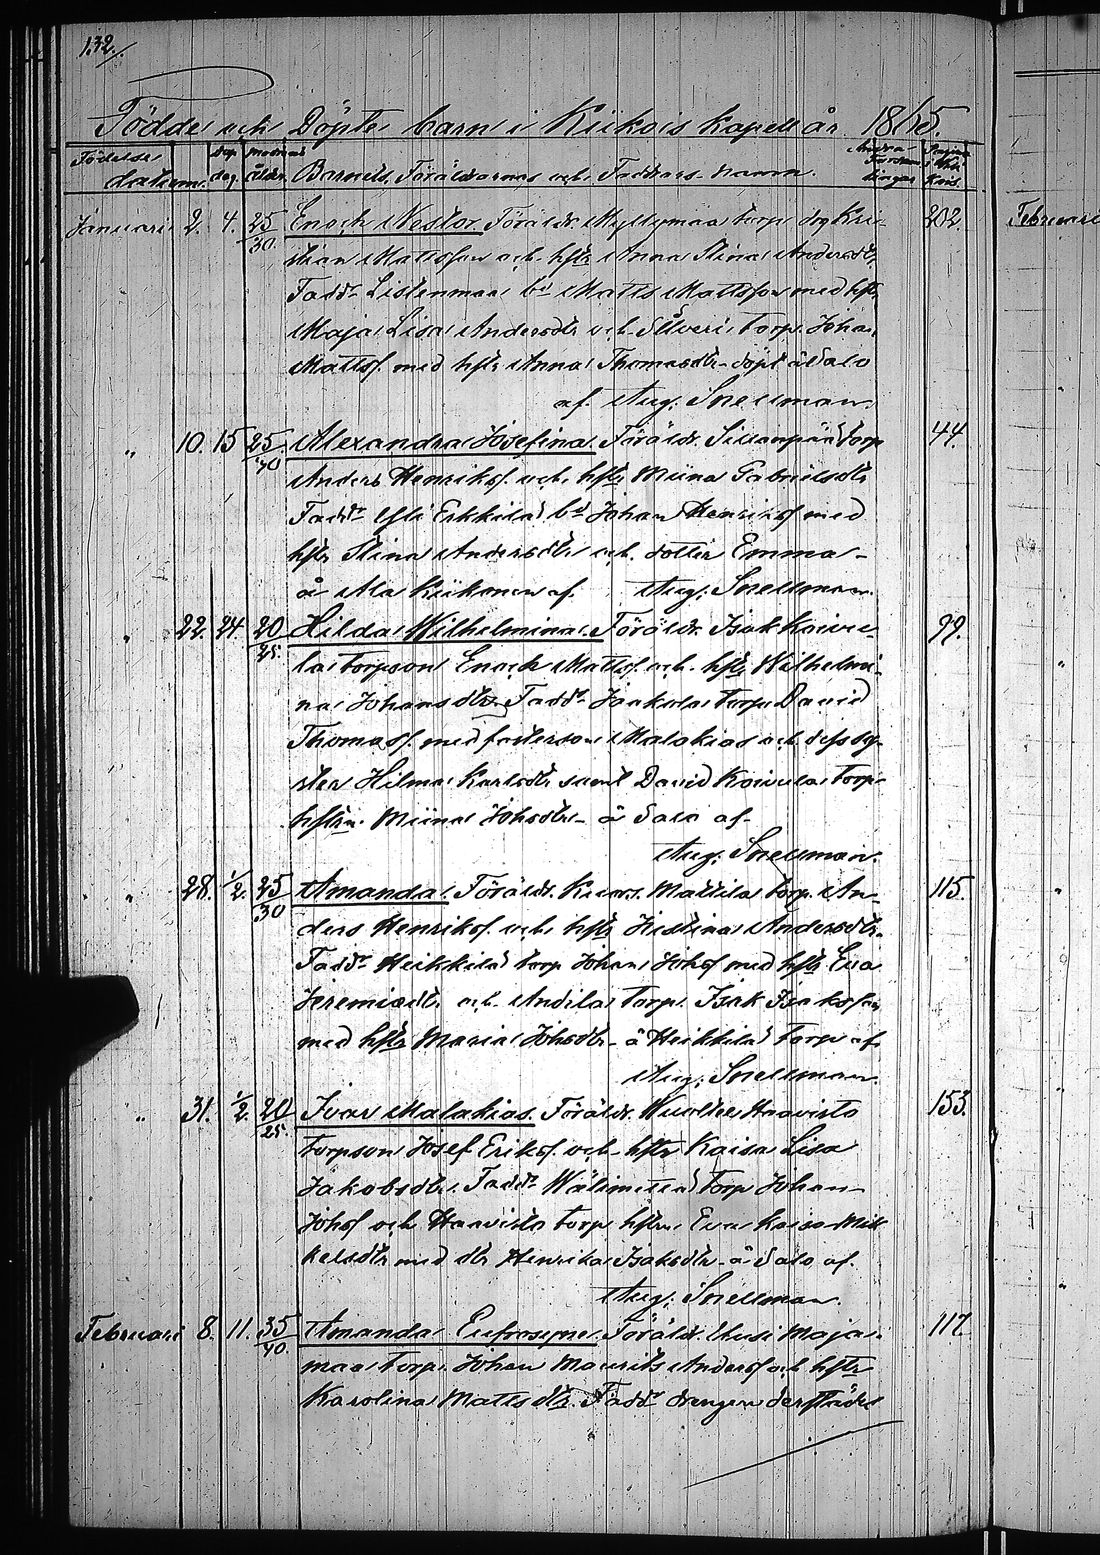 132./
Födde och Döpte barn i Kiikois kapell år 1865.
Födelse datum. Dop dag. Modrens ålder. Barnets, Föräldrarnas och Faddrars namn. Pagina i Kbk Kiis.
Januari 2. 4. 25/30 Enoch Nestor. Föräldr. Myllymaa torp. drg Kri- 202.
stian Mattsson och hstr Anna Stina Andersdtr,
Fadd. Listenmaa bd Matts Mattsson med hstr
Maja Lisa Andersdtr och Silveri torp. Johan
Mattss. med hstr Anna Thomasdtr - döpt å Salo
af. Aug: Snellman.
" 10. 15 25/40 Alexandra Josefina. Föräldr. Sillanpää torp 44.
Anders Henrikss. och hstr Miina Gabrielsdtr
Fadd. Yli Erkkilä bd Johan Henrikss med
hstr Stina Andersdtr och dotter Emma -
å Ala Kiikonen af. Aug: Snellman.
" 22. 24. 20/25. Hilda Wilhelmina. Föräldr. Isak Koivu- 99.
la torpson Enoch Mattss. och hstr Wilhelmi-
na Johansdtr Fadd. Jaakola torp. David
Thomass. med fosterson Malakias och dess sy-
ster Hilma Karlsdtr samt David Koivula torp-
hstrn Miina Johsdtr - å Salo af -
Aug: Snellman.
" 28. 1/2. 25/30 Amanda. Föräldr. Mattila torp. An- 115.
ders Henrikss. och hstr Kristina Andersdtr.
Fadd. Heikkilä torp Johan Johss med hstr Eva
Jeremiædtr och Anttila torp. Isak Isaksson
med hstr Maria Johsdtr - å Heikkilä torp af
Aug: Snellman.
" 31. 1/2. 20/25. Ivar Malakias. Föräldr. Haavisto 153.
torpson Josef Erikss. och hstr Kaisa Lisa
Jakobsdtr. Fadd. Wälimetsä torp Johan
Johss och Haavisto torp hstrn Eva Kaisa Mik
kelsdtr med dtr Henrika Isaksdtr - å Salo af.
Aug: Snellman.
Februari 8. 11. 35/40 Amanda Eufrosyne. Föräldr. Uusi Maja- 117.
maa torp. Johan Maurits Anderss och hstr
Karolina Mattsdtr. Fadd. drengen derstädes
Februari